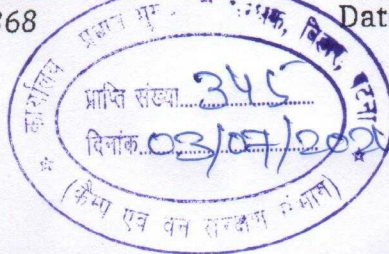 368
Dat
कार्यालय प्रधान मुख्य संरक्षक, बिहार, पटना
प्राप्ति संख्या 345
दिनांक 03/07/202
(कैम्पा एवं वन संरक्षण संभाग)